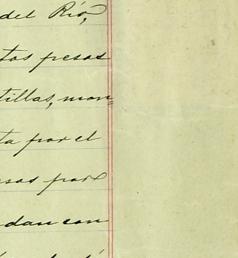 del Río,
tos pesos
tillas, mon=
ta por el
sos por
dan con